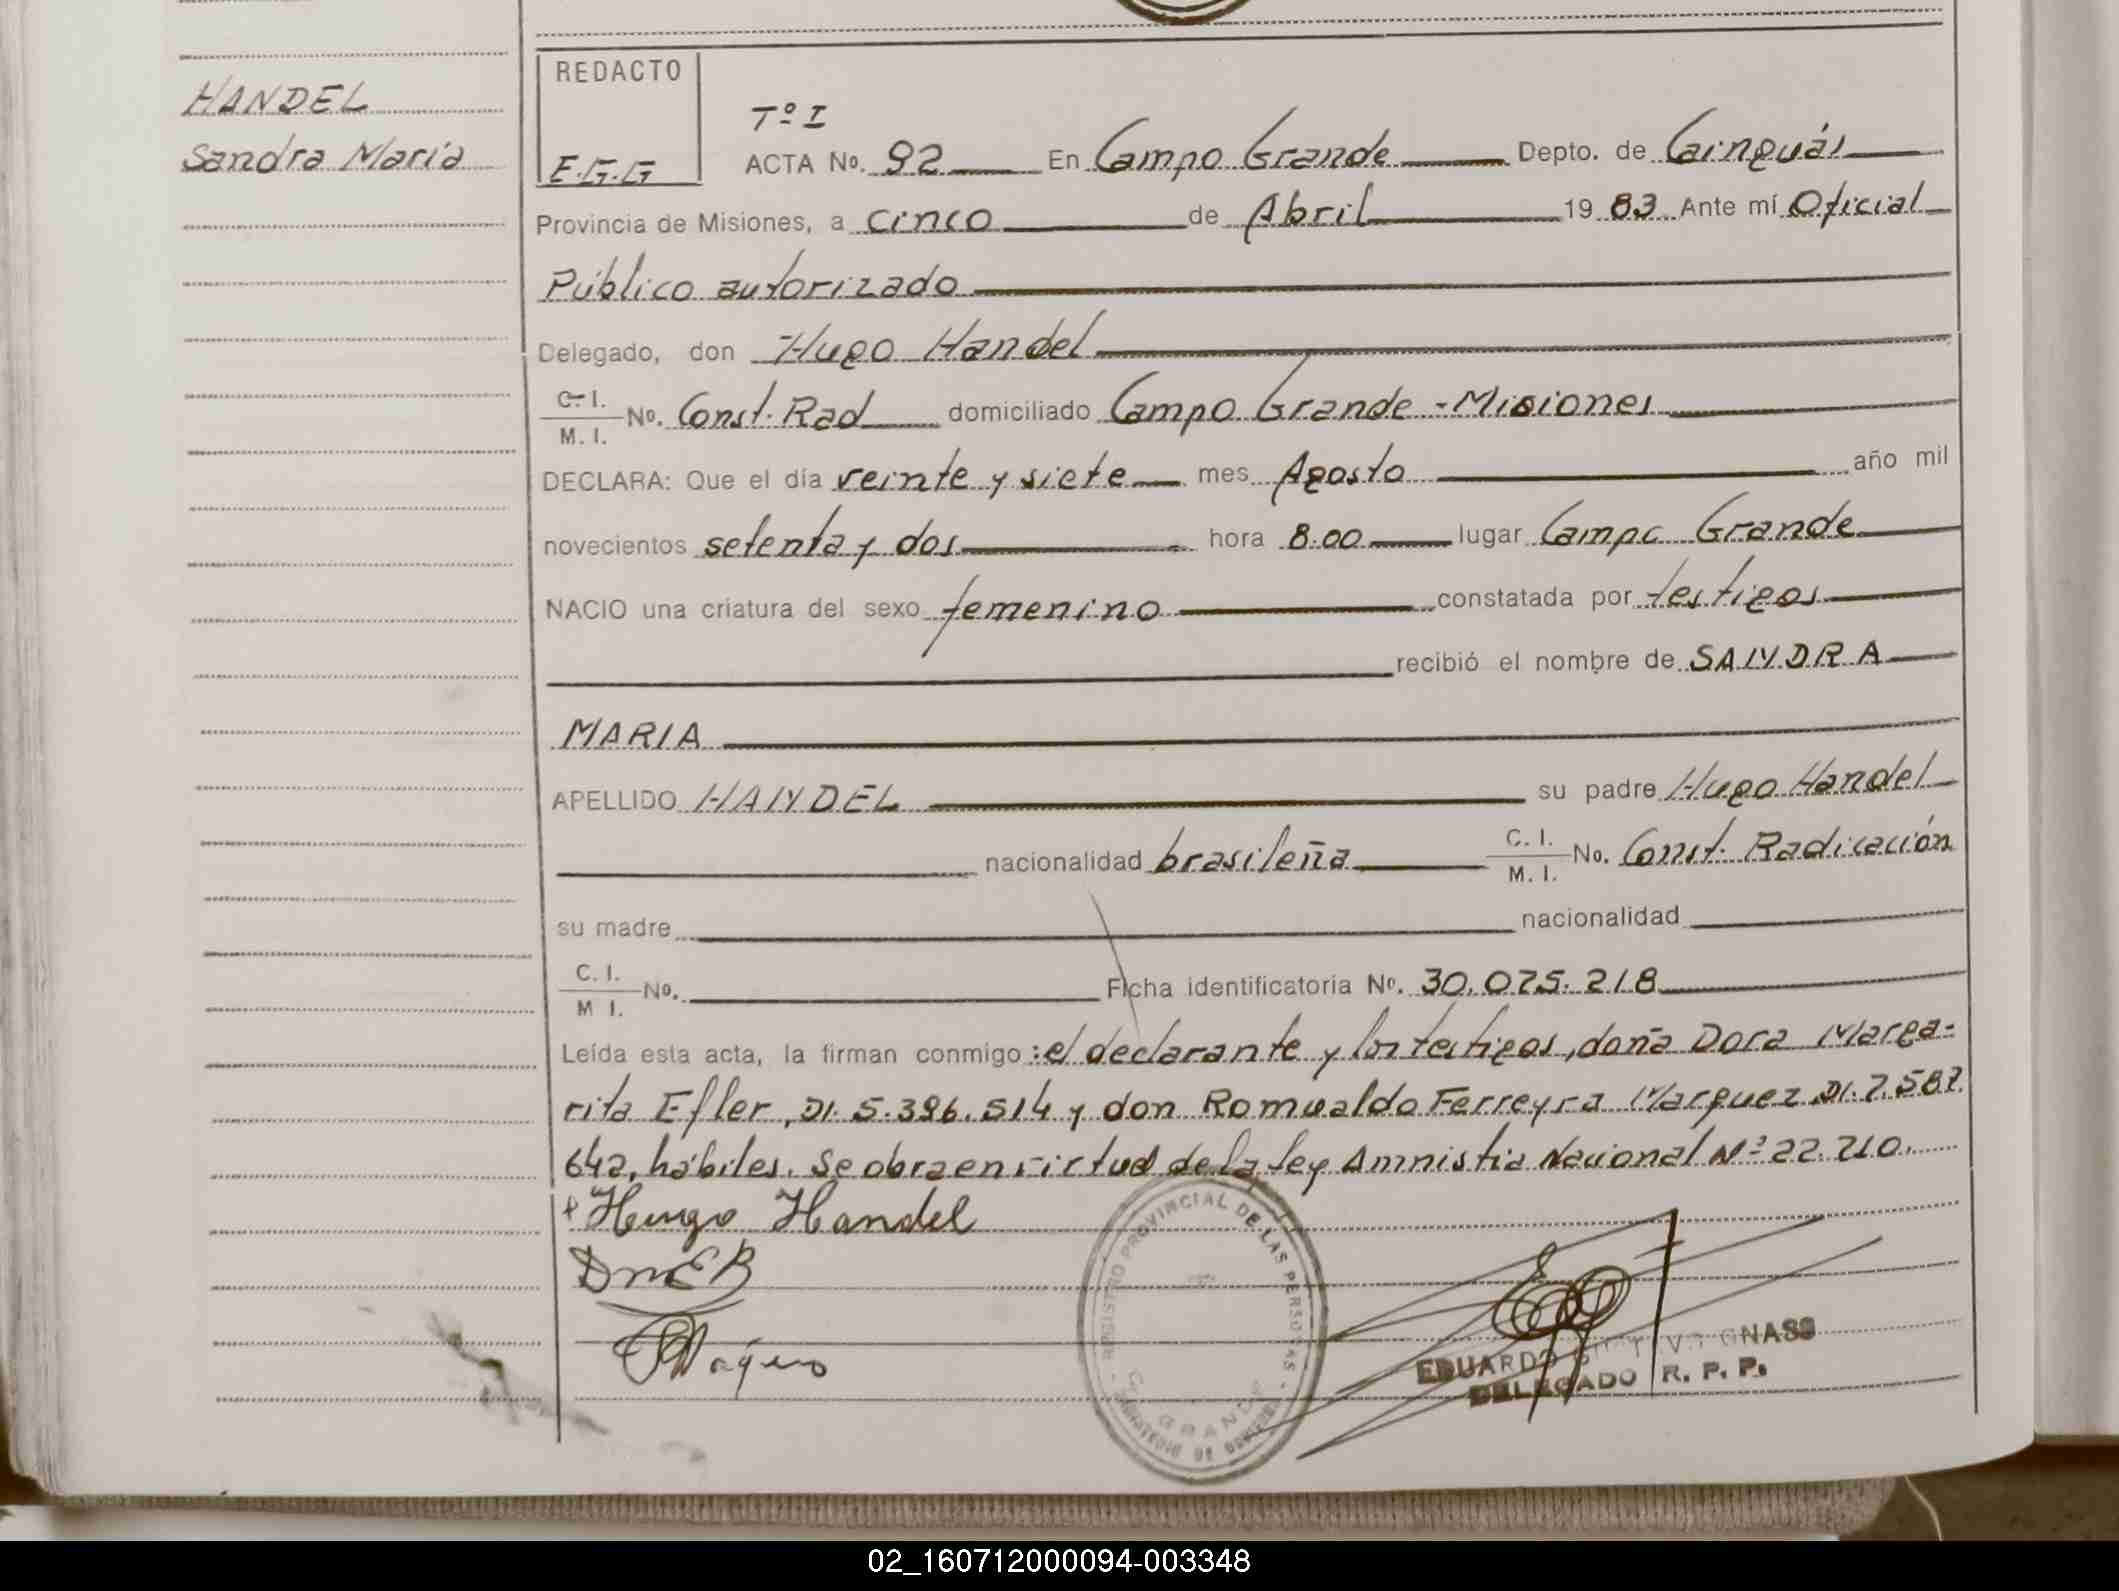 HANDEL
Sandra María
REDACTO
E.G.G
Tº I
ACTA No. 92 En Campo Grande Depto. de Cainguás
Provincia de Misiones, a cinco de Abril 19 83 Ante mí Oficial
Público autorizado
Delegado, don Hugo Handel
C. I.
M. I. No. Const. Rad domiciliado Campo Grande - Misiones
DECLARA: Que el día veinte y siete mes Agosto año mil
novecientos setenta y dos hora 8.00 lugar Campo Grande
NACIO una criatura del sexo femenino constatada por testigos
recibió el nombre de SANDRA
MARIA
APELLIDO HANDEL su padre Hugo Handel
nacionalidad brasileña C. I. M. I. No. Const. Radicación
su madre nacionalidad
C. I. M I. No. Ficha identificatoria No. 30.075.218
Leída esta acta, la firman conmigo: el declarante y los testigos, doña Dora Marga-
rita Efler, DI. 5.396.514 y don Romualdo Ferreyra Marquez DI. 7.587.
642, hábiles. Se obra en virtud de la ley Amnistia Nacional Nº 22.210.
Hugo Handel
DmEB
REGISTRO PROVINCIAL DE LAS PERSONAS
GRANDE
EDUARDO
DELEGADO R. P. P.
02_160712000094-003348